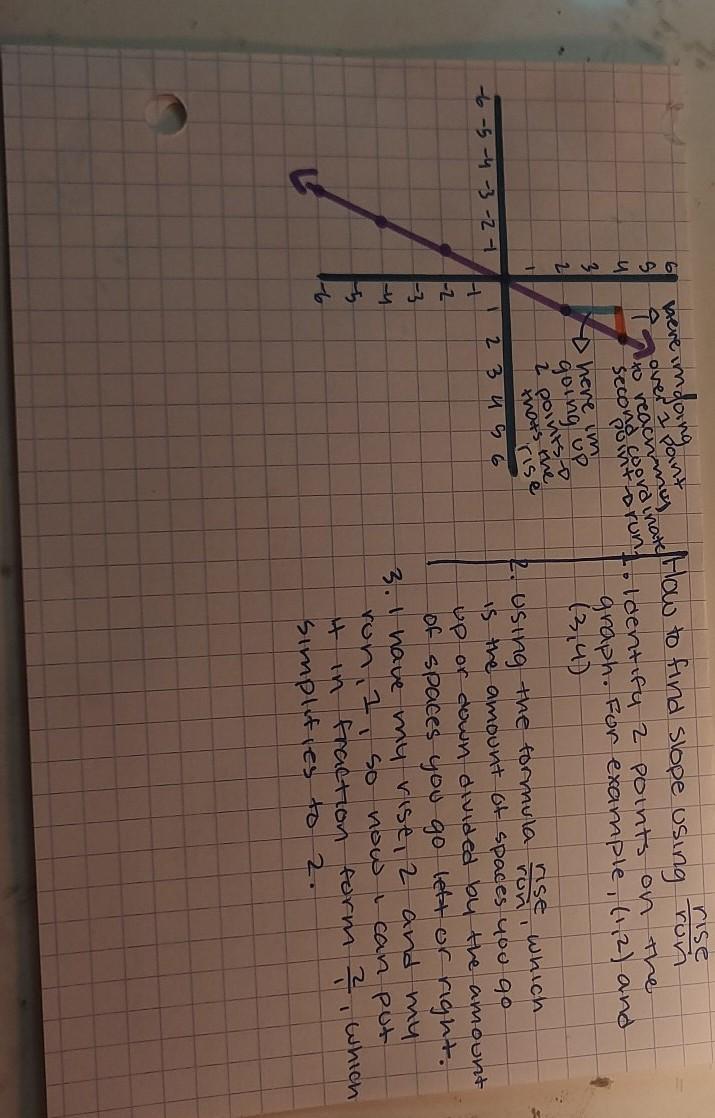 How to find slope using rise/run
1. Identify 2 points on the
graph. For example, (1,2) and
(2,4)
2. Using the formula rise/run, which
is the amount of spaces you go
up or down divided by the amount
of spaces you go left or right.
3. I have my rise, 2 and my
run, 1, so now i can put
it in fraction form 2/1, which
simplifies to 2.
here im going
over 1 point
to reach my
second coordinate
point → run
here im
going up
2 points →
thats the
rise
6
5
4
3
2
1
-6 -5 -4 -3 -2 -1 1 2 3 4 5 6
-1
-2
-3
-4
-5
-6